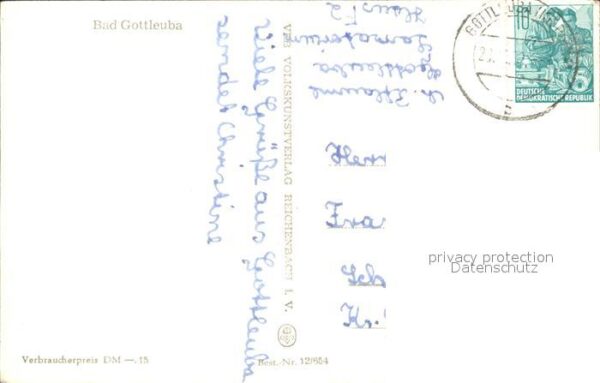 Bad Gottleuba
Viele Grüße aus Gottleuba
sendet Christine
VEB VOLKSKUNSTVERLAG REICHENBACH I. V.
Ch. Pflaume
Gottleuba
Sanatorium
Haus F2
GOTTLEUBA
10
DEUTSCHE
DEMOKRATISCHE REPUBLIK
Herr
Fra
Sch
Kr.
privacy protection
Datenschutz
Verbraucherpreis DM —.15
Best.-Nr. 12/654